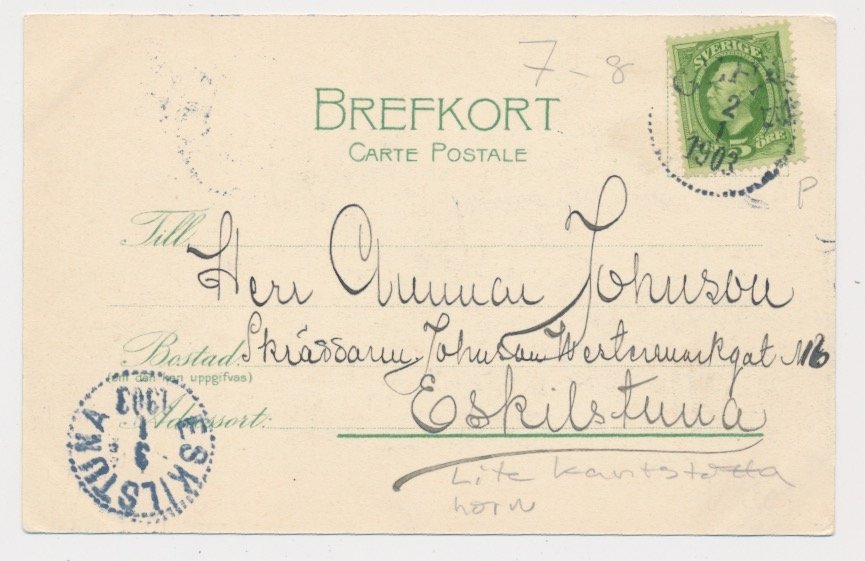 7-8
SVERIGE
5 ÖRE
2
1
1903
BREFKORT
CARTE POSTALE
P
Till
Herr Gunnar Johnson
Bostad: Skräddarn. Johnson Westermarkgat N16
(om den kan uppgifvas)
Adressort: Eskilstuna
ESKILSTUNA
3
1
1903
Lite kantstötta
horn